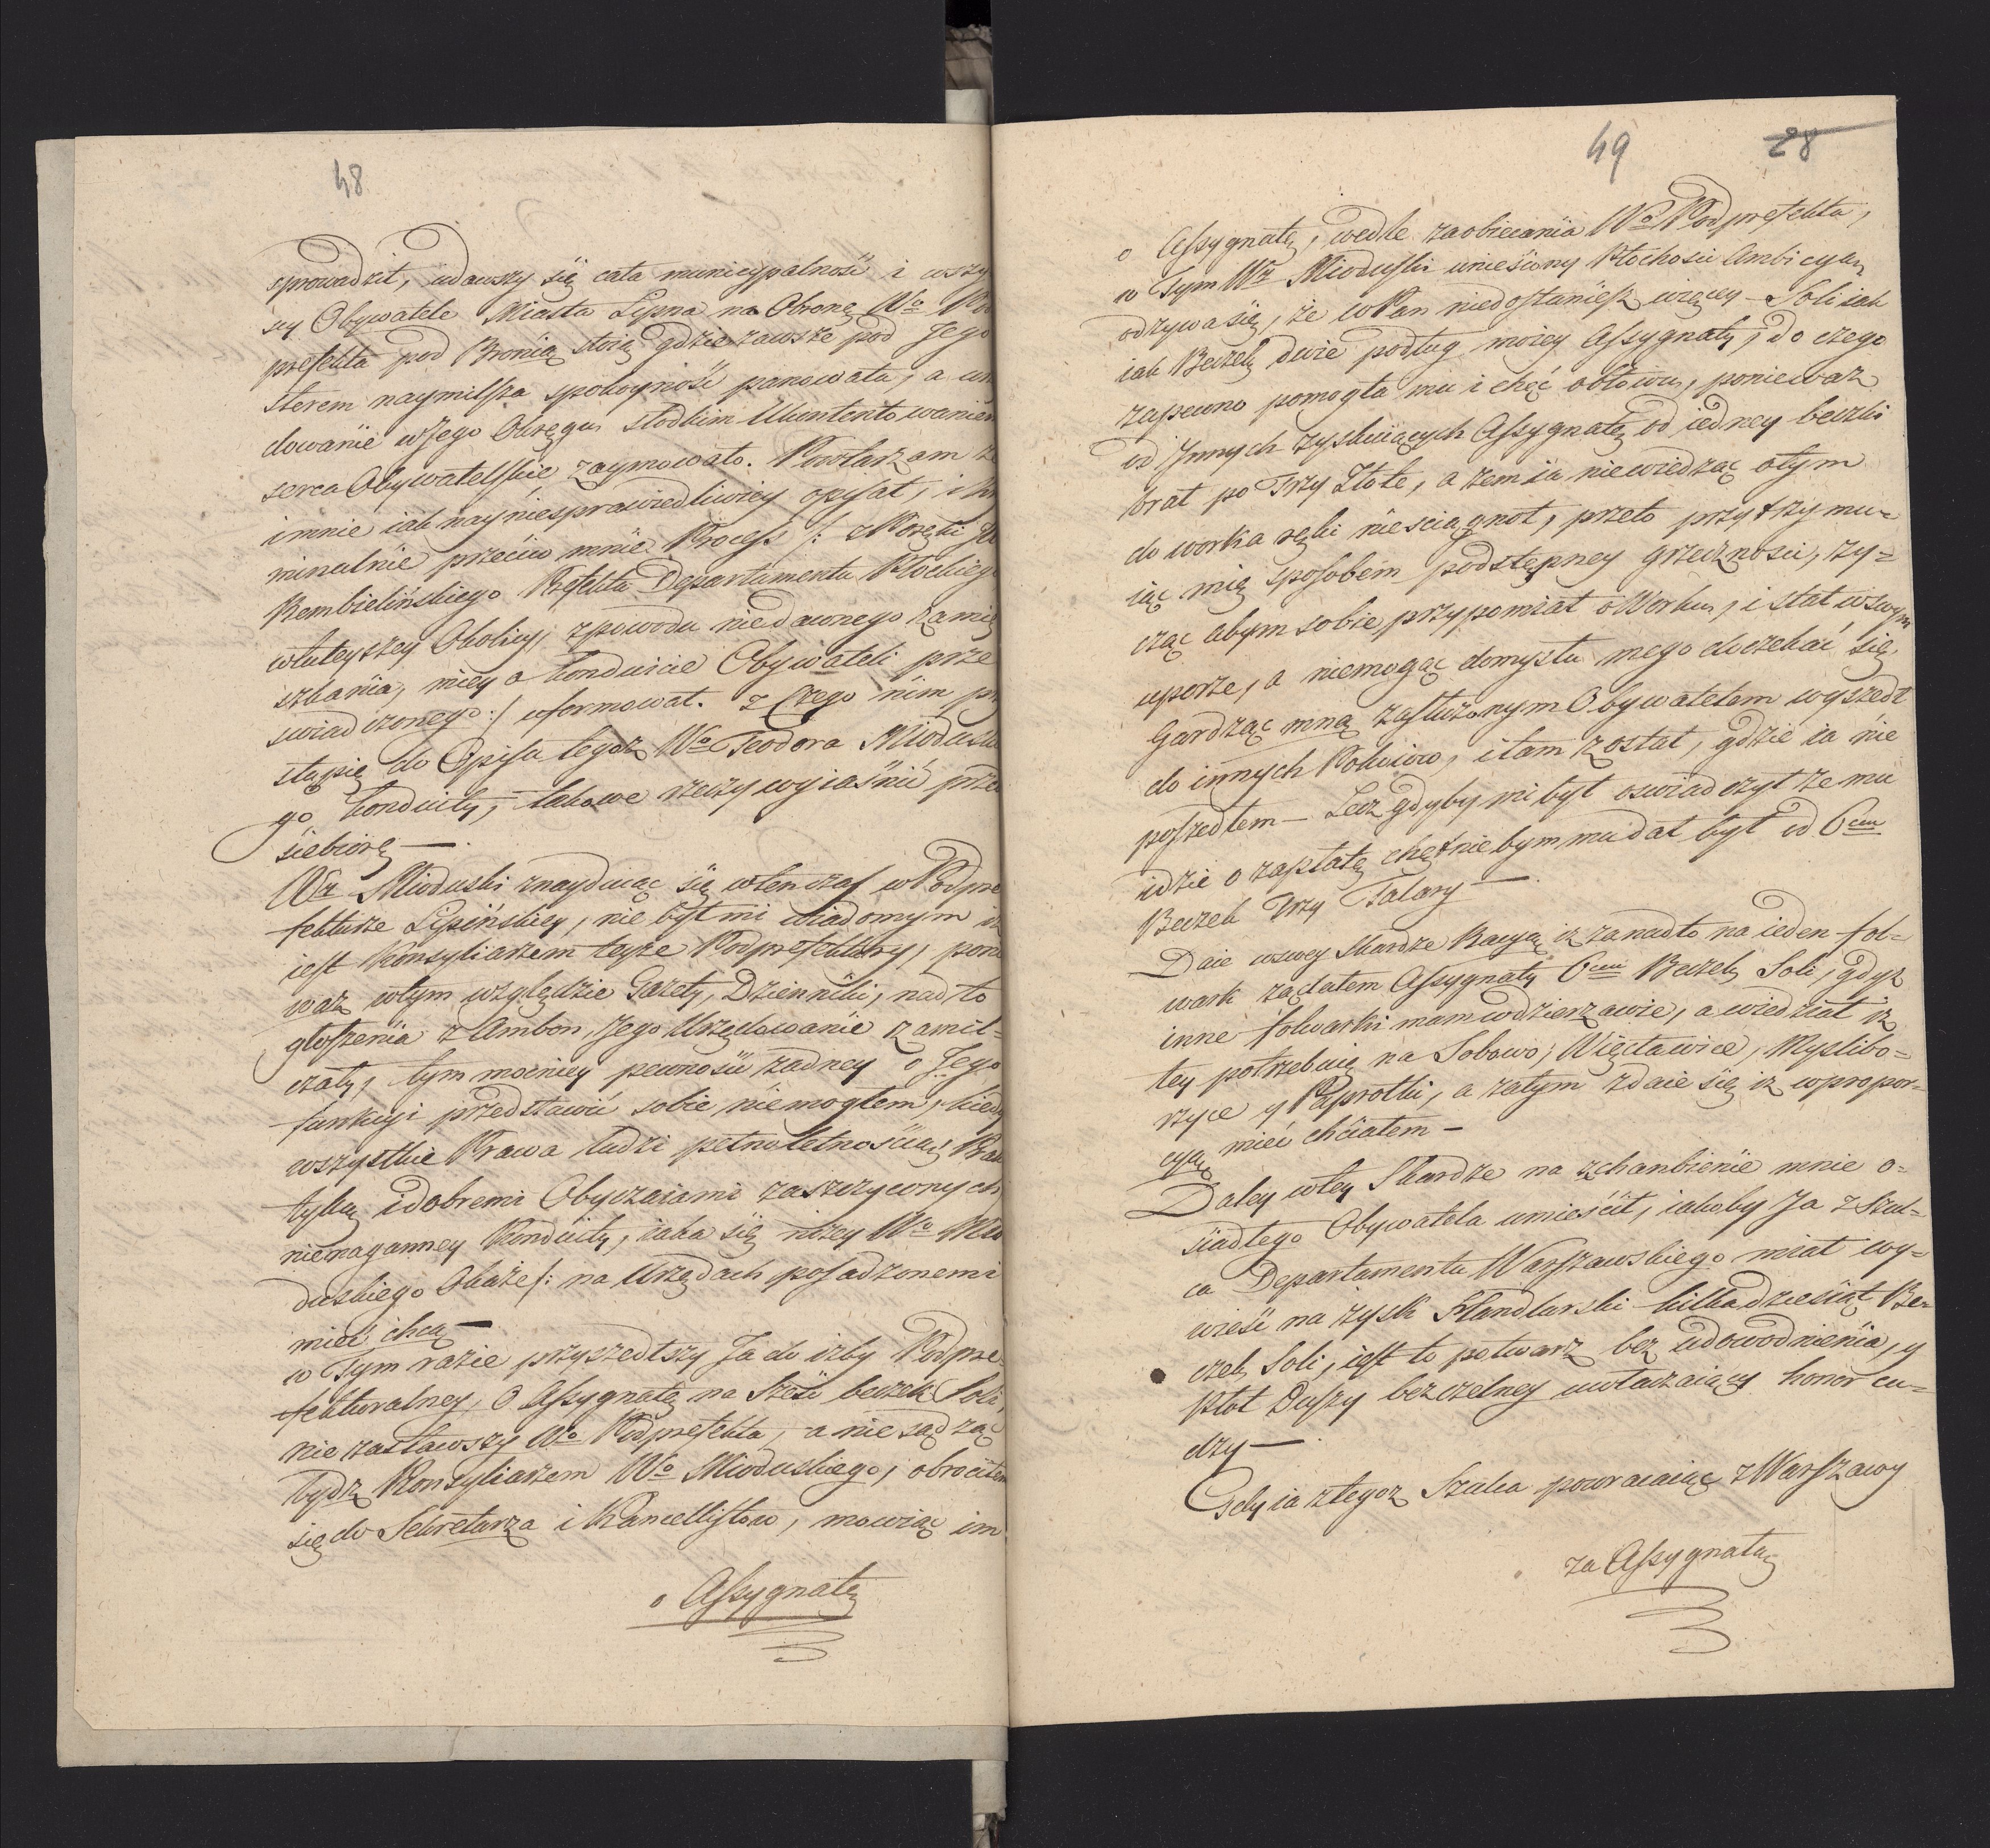 48
sprowadzit, udawszy się cała municypalność i wszy
scy Obywatele Miasta Lipna na Obronę Wo Po
prefekta pod Bronią stoią gdzie zawsze pod Jego
sterem naymilsza spokoyność panowała, a
dowanie w Jego Okręgu słodkim Ukontentowaniem
serca Obywatelskie zaymowało. Powtarzam że
i mnie iak nayniesprawiedliwiey opisał, i
minalnie przeciw mnie Process /: z Poręki JW
Rembielińskiego Prefekta Departamentu Płockiego
w tuteyszey Okolicy, z powodu niedawnego zamię
szkania, miey o konduicie Obywateli prze
świadczonego :/ uformował. z Czego nim prz
stąpię do Opisu tegoż Wo Teodora Miodusk
go konduity, takowe rzeczy wyiaśnić przed
siebiorę —
Wr Mioduski znayduiąc się wtenczas w Podpre
fekturze Lipińskiey, nie był mi wiadomym iż
iest Konsyliarzem teyże Podprefektury, poni
waż w tym względzie Gazety, Dzienniki, nadto
głoszenia z Ambon, Jego Urzędowanie zamil=
czały, tym mocniey pewności żadney o Jego
funkcyi przedstawić sobie niemogłem, kiedy
wszystkie Prawa ludzi pełnoletnością, Prak
tyką i dobremi Obyczaiami zaszczyconych
nienaganney Konduity, iaka się niżey Wo Mio
duskiego Okaże /: na Urzędach posadzonemi
mieć chcą —
w Tym razie przyszedłszy Ja do izby Podpre=
fekturalney, O Assygnatę na Sześć beczek Soli,
nie zastawszy Wo Podprefekta, a nie sądząc
bydź Konsyliarzem Wo Mioduskiego, obrociłem
się do Sekretarza i Kancellistow, mowiąc im
o Assygnatę
49 28
o Assygnatę, wedle zaobiecania Wo Podprefekta,
w Tym Wr Mioduski uniesiony Płochości Ambicyą
odzywa się, że w Pan niedostaniesz więcey Soli iak
iak Beczek dwie podług moiey Assygnaty, do czego
zapewno pomogła mu i chęć obłowu, poniewaz
od Innych zyskuiących Assygnatę od iedney beczki
brał po Trzy Złote, a żem ia niewiedząc o tym
do worka ręki nie sciągnoł, przeto przytrzymu=
iąc mię sposobem podstępney grzeczności, ży=
cząc abym sobie przypomiał o Worku, i stał w swym
uporze, a niemogąc domysłu mego doczekać się,
Gardząc mną zasłużonym Obywatelem wyszedł
do innych Pokoiow, i tam został, gdzie ia nie
poszedłem — Lecz gdyby mi był oswiadczył że mu
idzie o zapłatę chętnie bym mu dał był od 6ciu
Beczek Trzy Talary —
Daie w swey Skardze Racyą iż zanadto na ieden fol=
wark żądałem Assygnaty 6ciu Beczek Soli, gdyż
inne folwarki mam w dzierzawie, a wiedział iż
tey potrzebuię na Sobowo, Więcławice, Myslibo=
rzyce y Paprotki, a zatym zdaie się iż w propor=
cyą mieć chciałem —
Daley w tey Skardze na zchanbienie mnie o=
siadłego Obywatela umieścił, iakoby Ja z Szul=
ca Departamentu Warszawskiego miał wy=
wieść na zysk Handlarski kilkadziesiąt Be=
czek Soli, iest to potwarz bez udowodnienia, y
Płot Duszy bezczelney uwłaczaiący honor cu=
dzy —
Gdy ia z tegoż Szulca powracaiąc z Warszawy
za Assygnatą